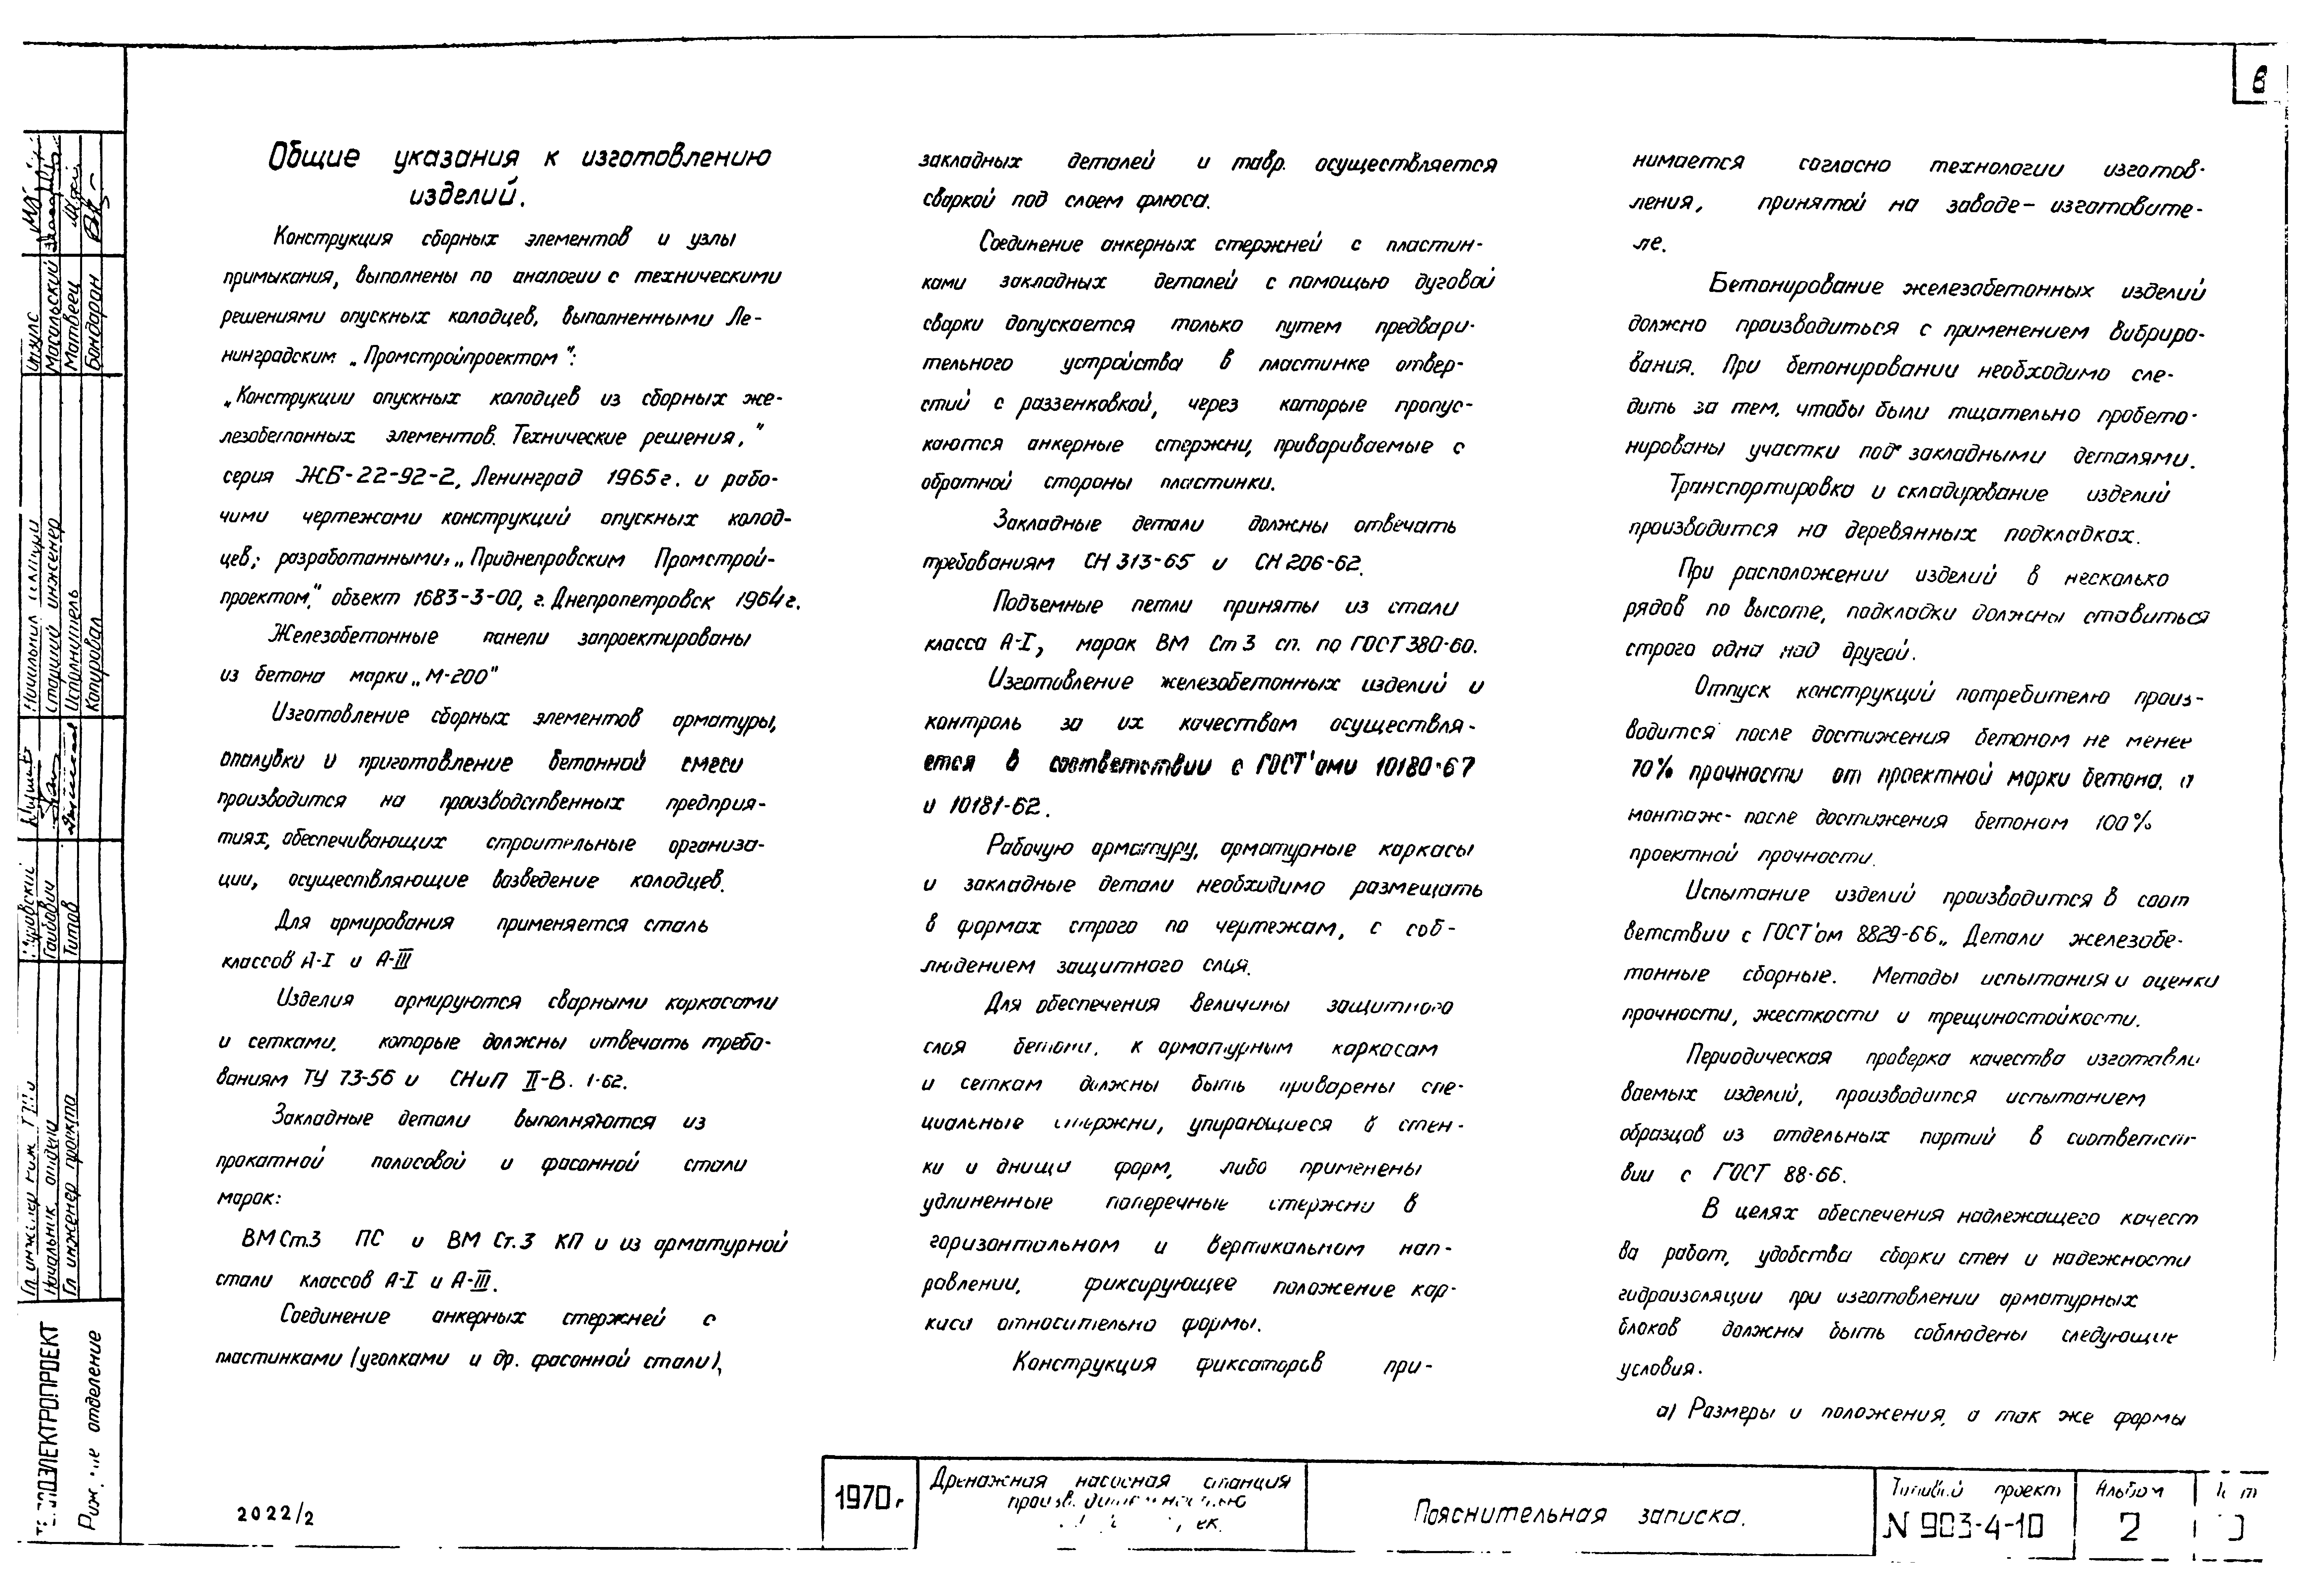 6
Общие указания к изготовлению
изделий.
Конструкция сборных элементов и узлы
примыкания, выполнены по аналогии с техническими
решениями опускных колодцев, выполненными Ле-
нинградским „Промстройпроектом":
„Конструкции опускных колодцев из сборных же-
лезобетонных элементов. Технические решения,"
серия ЖБ-22-92-2, Ленинград 1965г. и рабо-
чими чертежами конструкций опускных колод-
цев; разработанными, „Приднепровским Промстрой-
проектом," объект 1683-3-00, г. Днепропетровск 1964г.
Железобетонные панели запроектированы
из бетона марки „М-200"
Изготовление сборных элементов арматуры,
опалубки и приготовление бетонной смеси
производится на производственных предприя-
тиях, обеспечивающих строительные организа-
ции, осуществляющие возведение колодцев.
Для армирования применяется сталь
классов А-I и А-III
Изделия армируются сварными каркасами
и сетками, которые должны отвечать требо-
ваниям ТУ 73-56 и СНиП II-В. 1-62.
Закладные детали выполняются из
прокатной полосовой и фасонной стали
марок:
ВМ Ст.3 ПС и ВМ Ст.3 КП и из арматурной
стали классов А-I и А-III.
Соединение анкерных стержней с
пластинками (уголками и др. фасонной стали),
закладных деталей и тавр. осуществляется
сваркой под слоем флюса.
Соединение анкерных стержней с пластин-
ками закладных деталей с помощью дуговой
сварки допускается только путем предвари-
тельного устройства в пластинке отвер-
стий с раззенковкой, через которые пропус-
каются анкерные стержни, привариваемые с
обратной стороны пластинки.
Закладные детали должны отвечать
требованиям СН 313-65 и СН 206-62.
Подъемные петли приняты из стали
класса А-I, марок ВМ Ст 3 сп. по ГОСТ 380-60.
Изготовление железобетонных изделий и
контроль за их качеством осуществля-
ется в соответствии с ГОСТ'ами 10180-67
и 10181-62.
Рабочую арматуру, арматурные каркасы
и закладные детали необходимо размещать
в формах строго по чертежам, с соб-
людением защитного слоя.
Для обеспечения величины защитного
слоя бетона, к арматурным каркасам
и сеткам должны быть приварены спе-
циальные стержни, упирающиеся в стен-
ки и днища форм, либо применены
удлиненные поперечные стержни в
горизонтальном и вертикальном нап-
равлении, фиксирующее положение кар-
каса относительно формы.
Конструкция фиксаторов при-
нимается согласно технологии изготов-
ления, принятой на заводе-изготовите-
ле.
Бетонирование железобетонных изделий
должно производиться с применением вибриро-
вания. При бетонировании необходимо сле-
дить за тем, чтобы были тщательно пробето-
нированы участки под закладными деталями.
Транспортировка и складирование изделий
производится на деревянных подкладках.
При расположении изделий в несколько
рядов по высоте, подкладки должны ставиться
строго одна над другой.
Отпуск конструкций потребителю произ-
водится после достижения бетоном не менее
70% прочности от проектной марки бетона, а
монтаж- после достижения бетоном 100%
проектной прочности.
Испытание изделий производится в соот
ветствии с ГОСТ'ом 8829-66 „ Детали железобе-
тонные сборные. Методы испытания и оценки
прочности, жесткости и трещиностойкости.
Периодическая проверка качества изготавли
ваемых изделий, производится испытанием
образцов из отдельных партий в соответст-
вии с ГОСТ 88-66.
В целях обеспечения надлежащего качест
ва работ, удобства сборки стен и надежности
гидроизоляции при изготовлении арматурных
блоков должны быть соблюдены следующие
условия.
а) Размеры и положения, а так же формы
Начальник
Старший инженер
Исполнитель
Копировал
Масальский
Матвеец
Бондаран
Гл инженер
Начальник отдела
Гл инженер проекта
Гайбович
Титов
ТЕПЛОЭЛЕКТРОПРОЕКТ
Риж отделение
2022/2
1970г
Дренажная насосная станция
Пояснительная записка.
Типовой проект
N 903-4-10
Альбом
2